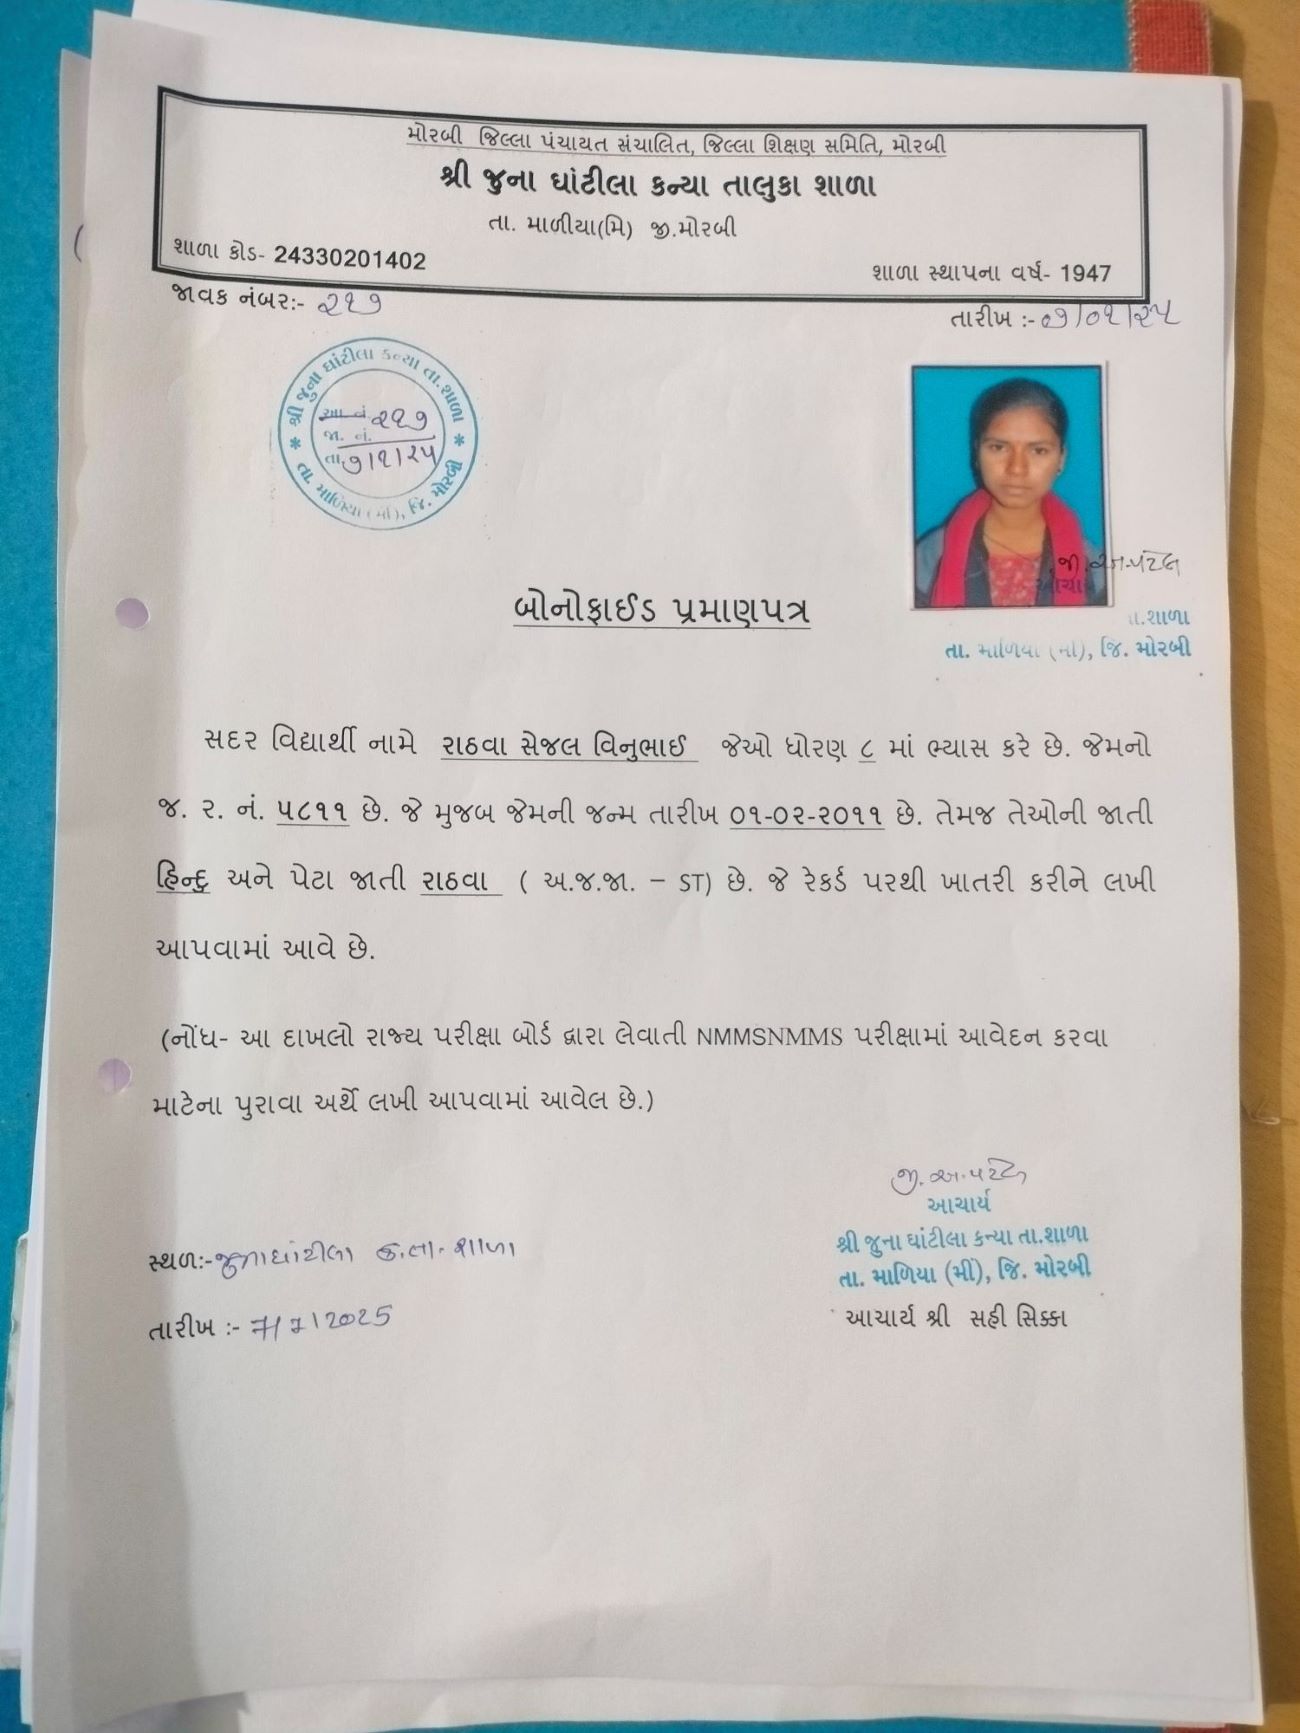 મોરબી જિલ્લા પંચાયત સંચાલિત, જિલ્લા શિક્ષણ સમિતિ, મોરબી
શ્રી જુના ઘાંટીલા કન્યા તાલુકા શાળા
તા. માળીયા(મિ) જી.મોરબી
શાળા કોડ- 24330201402
શાળા સ્થાપના વર્ષ- 1947
જાવક નંબર:- ૨૧૭
તારીખ :- ૦૭/૦૧/૨૫
શ્રી જુના ઘાંટીલા કન્યા તા.શાળા
આ. નં. ૨૧૭
જા. નં.
તા. ૭/૧/૨૫
તા. માળિયા (મીં), જિ. મોરબી
જી.એ.પટેલ
આચાર્ય
તા.શાળા
તા. માળિયા (મીં), જિ. મોરબી
બોનોફાઈડ પ્રમાણપત્ર
સદર વિદ્યાર્થી નામે રાઠવા સેજલ વિનુભાઈ જેઓ ધોરણ ૮ માં ભ્યાસ કરે છે. જેમનો
જ. ર. નં. ૫૮૧૧ છે. જે મુજબ જેમની જન્મ તારીખ ૦૧-૦૨-૨૦૧૧ છે. તેમજ તેઓની જાતી
હિન્દુ અને પેટા જાતી રાઠવા ( અ.જ.જા. – ST) છે. જે રેકર્ડ પરથી ખાતરી કરીને લખી
આપવામાં આવે છે.
(નોંધ- આ દાખલો રાજ્ય પરીક્ષા બોર્ડ દ્વારા લેવાતી NMMSNMMS પરીક્ષામાં આવેદન કરવા
માટેના પુરાવા અર્થે લખી આપવામાં આવેલ છે.)
જી.એ.પટેલ
આચાર્ય
શ્રી જુના ઘાંટીલા કન્યા તા.શાળા
તા. માળિયા (મીં), જિ. મોરબી
આચાર્ય શ્રી સહી સિક્કા
સ્થળ:- જુનાઘાંટીલા ક.તા.શાળા
તારીખ :- 7/1/2025